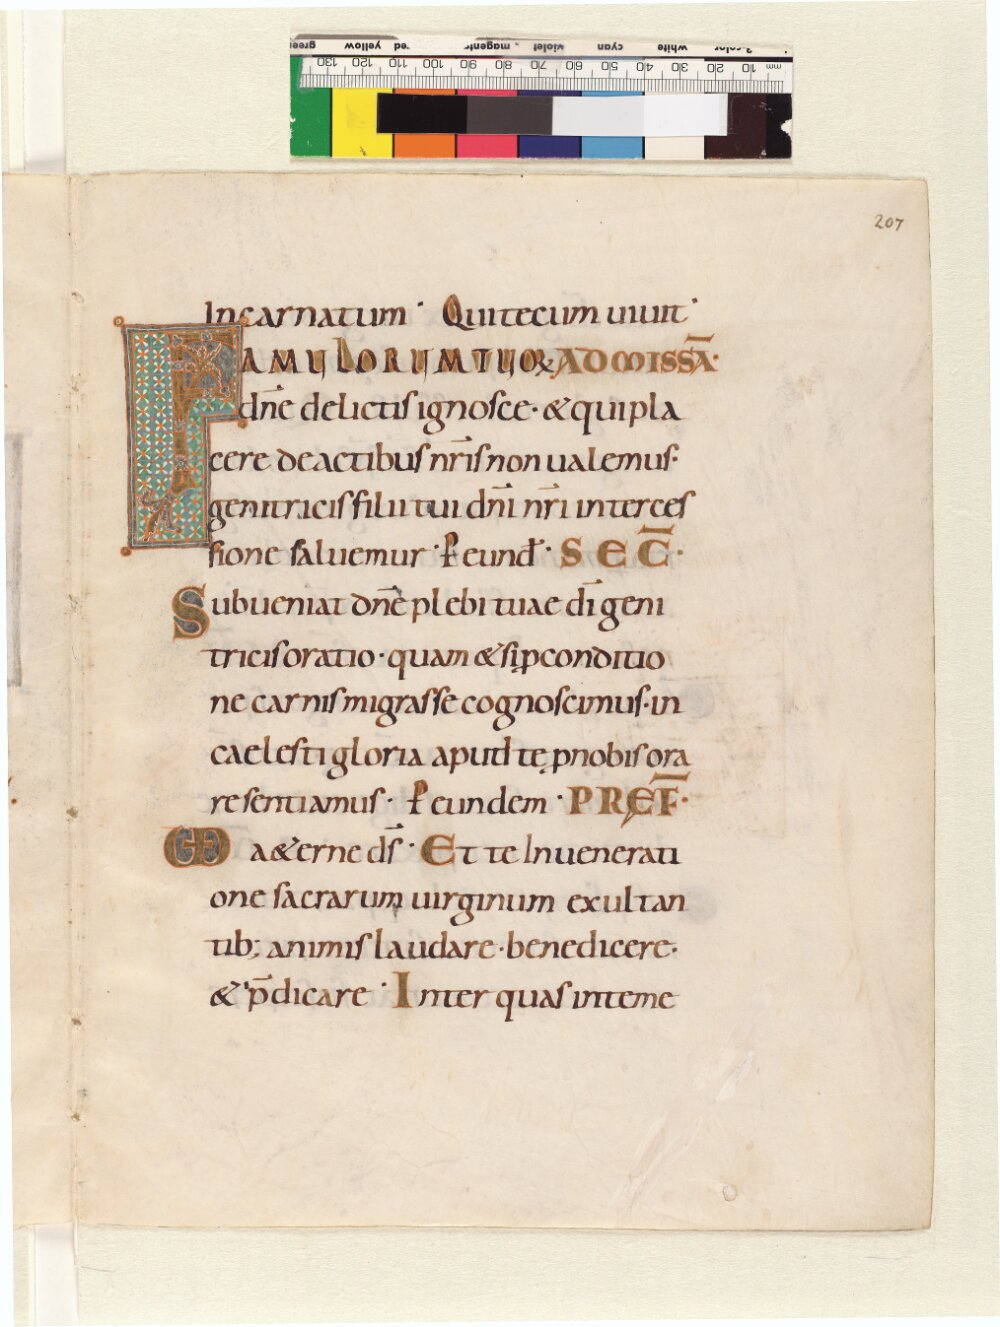 207
Incarnatum · Qui tecum uiuit ·
FAMULORUM TUOꝝ AD MISSĀ·
dn̄e delictis ignosce· & qui pla
cere de actibus nr̄is non ualemus·
genitricis filii tui dn̄i nr̄i interces
sione saluemur · P eund̄ · SEC̄·
Subueniat dn̄e plebi tuae dī geni
tricis oratio· quam & si ꝓ conditio
ne carnis migrasse cognoscimus· in
caelesti gloria apud te ꝓ nobis ora
re sentiamus· P eundem · PRĘF̄·
VD aeterne ds̄ · Et te In uenerati
one sacrarum uirginum exultan
tib; animis laudare· benedicere·
& p̄dicare · Inter quas inteme